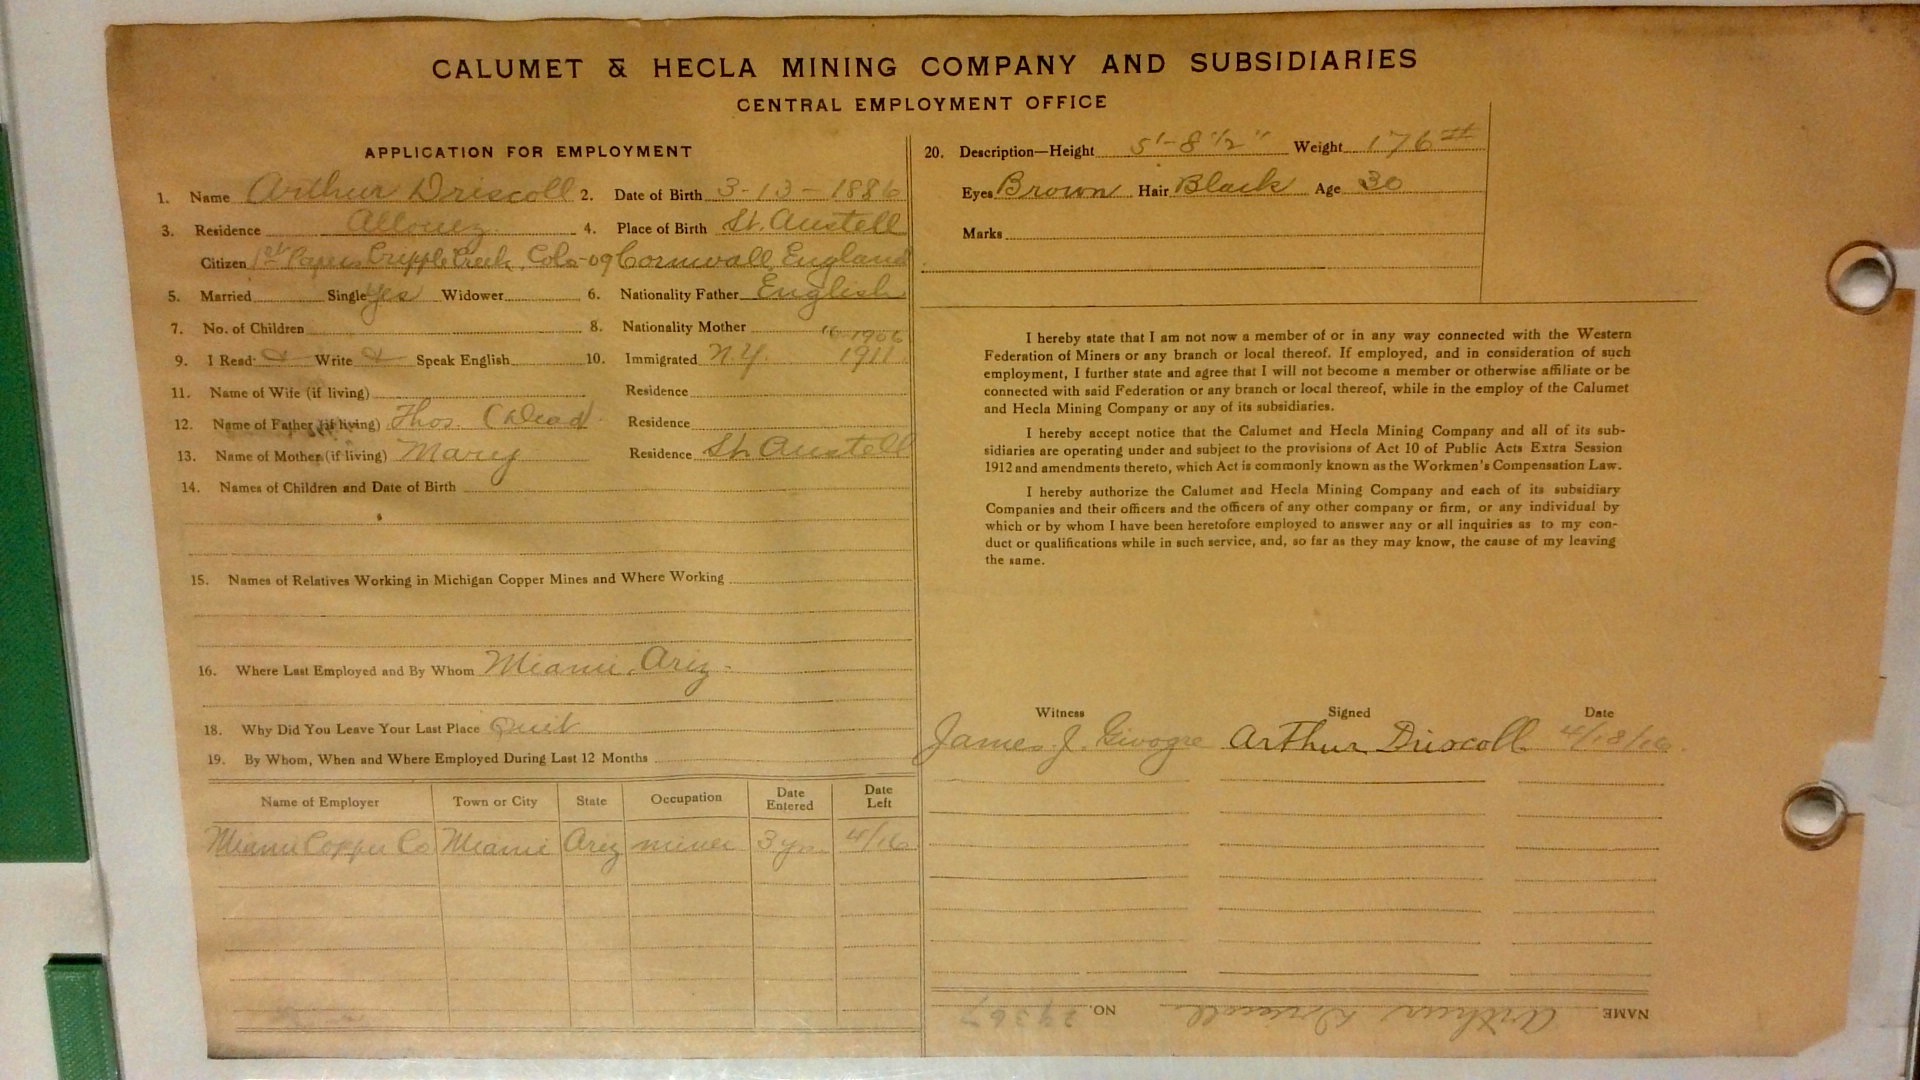 CALUMET & HECLA MINING COMPANY AND SUBSIDIARIES
CENTRAL EMPLOYMENT OFFICE
APPLICATION FOR EMPLOYMENT
1. Name Arthur Driscoll 2. Date of Birth 3-13-1886
3. Residence Allouez 4. Place of Birth St. Austell
Citizen 1st Papers Cripple Creek, Colo-09 Cornwall, England
5. Married Single Yes Widower 6. Nationality Father English
7. No. of Children 8. Nationality Mother
1906
9. I Read Write Speak English 10. Immigrated N.Y. 1911
11. Name of Wife (if living) Residence
12. Name of Father (if living) Thos. (Dead) Residence
13. Name of Mother (if living) Mary Residence St. Austell
14. Names of Children and Date of Birth
15. Names of Relatives Working in Michigan Copper Mines and Where Working
16. Where Last Employed and By Whom Miami, Ariz.
18. Why Did You Leave Your Last Place Quit
19. By Whom, When and Where Employed During Last 12 Months
Name of Employer Town or City State Occupation Date Entered Date Left
Miami Copper Co Miami Ariz miner 3 yrs 4/16
20. Description—Height 5'-8 1/2" Weight 176#
Eyes Brown Hair Black Age 30
Marks
I hereby state that I am not now a member of or in any way connected with the Western
Federation of Miners or any branch or local thereof. If employed, and in consideration of such
employment, I further state and agree that I will not become a member or otherwise affiliate or be
connected with said Federation or any branch or local thereof, while in the employ of the Calumet
and Hecla Mining Company or any of its subsidiaries.
I hereby accept notice that the Calumet and Hecla Mining Company and all of its sub-
sidiaries are operating under and subject to the provisions of Act 10 of Public Acts Extra Session
1912 and amendments thereto, which Act is commonly known as the Workmen's Compensation Law.
I hereby authorize the Calumet and Hecla Mining Company and each of its subsidiary
Companies and their officers and the officers of any other company or firm, or any individual by
which or by whom I have been heretofore employed to answer any or all inquiries as to my con-
duct or qualifications while in such service, and, so far as they may know, the cause of my leaving
the same.
Witness Signed Date
James J. Arthur Driscoll 4/18/16.
NAME Arthur Driscoll NO.